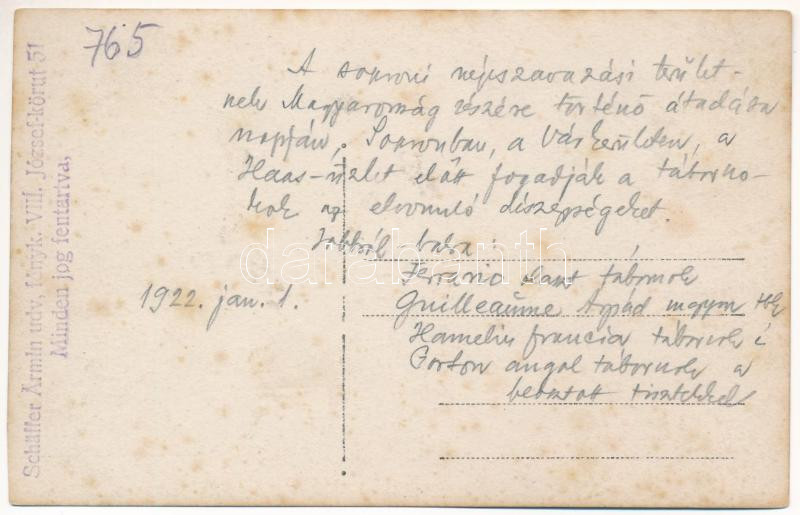 765
A soproni népszavazási terület-
nek Magyarország részére történő átadása
napján, Sopronban, a Várkerületen, a
Haas-üzlet előtt fogadják a táborno-
kok az elvonuló díszegységeket.
Jobbról-balra:
Ferrario olasz tábornok
Guilleaume Árpád magyar tbk
Hamelin francia tábornok é
Gorton angol tábornok a
beosztott tisztekkel
1922. jan. 1.
Schäffer Ármin udv. fényk. VIII. József-körut 51
Minden jog fentartva,
darabanth